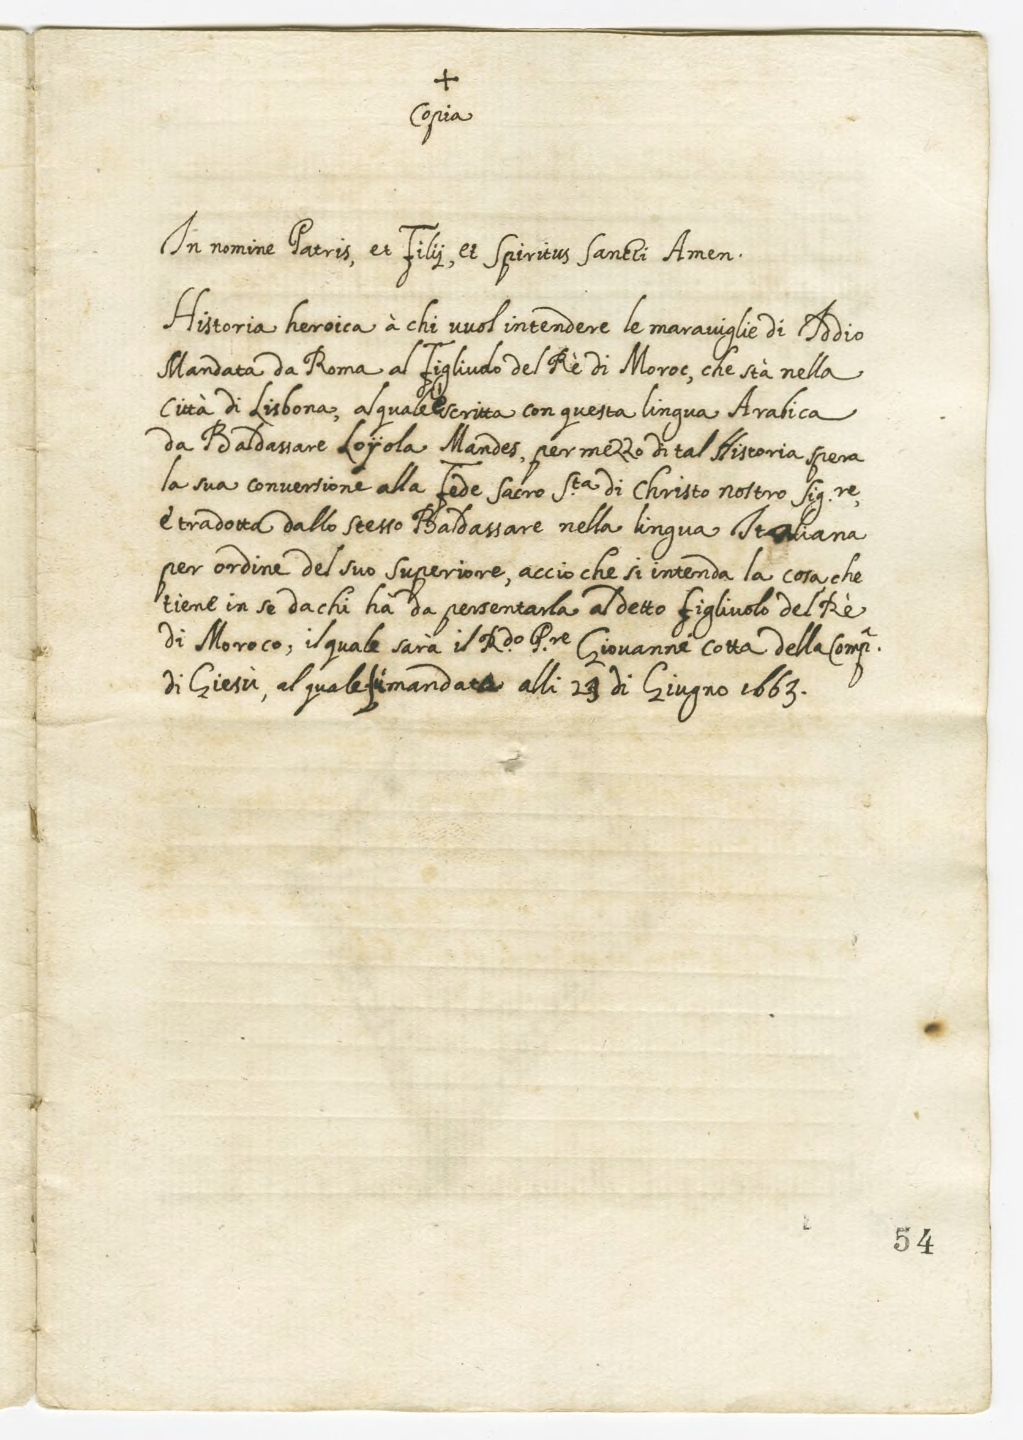 +
Copia
In nomine Patris, et Filij, et Spiritus Sancti Amen.
Historia heroica à chi vuol intendere le marauiglie di Iddio
Mandata da Roma al Figliuolo del Rè di Moroc, che stà nella
Città di Lisbona, al quale è scritta con questa lingua Arabica
da Baldassare Loÿola Mandes, per mezzo di tal Historia spera
la sua conuersione alla Fede Sacro S.ta di Christo nostro Sig.re,
è tradotta dallo stesso Baldassare nella lingua Italiana
per ordine del suo Superiore, accio che si intenda la cosa che
tiene in se da chi hà da persentarla al detto figliuolo del Rè
di Moroco, il quale sarà il R.do P.re Giouanne Cotta della Comp.
di Giesù, al quale fù mandata alli 23 di Giugno 1663.
54